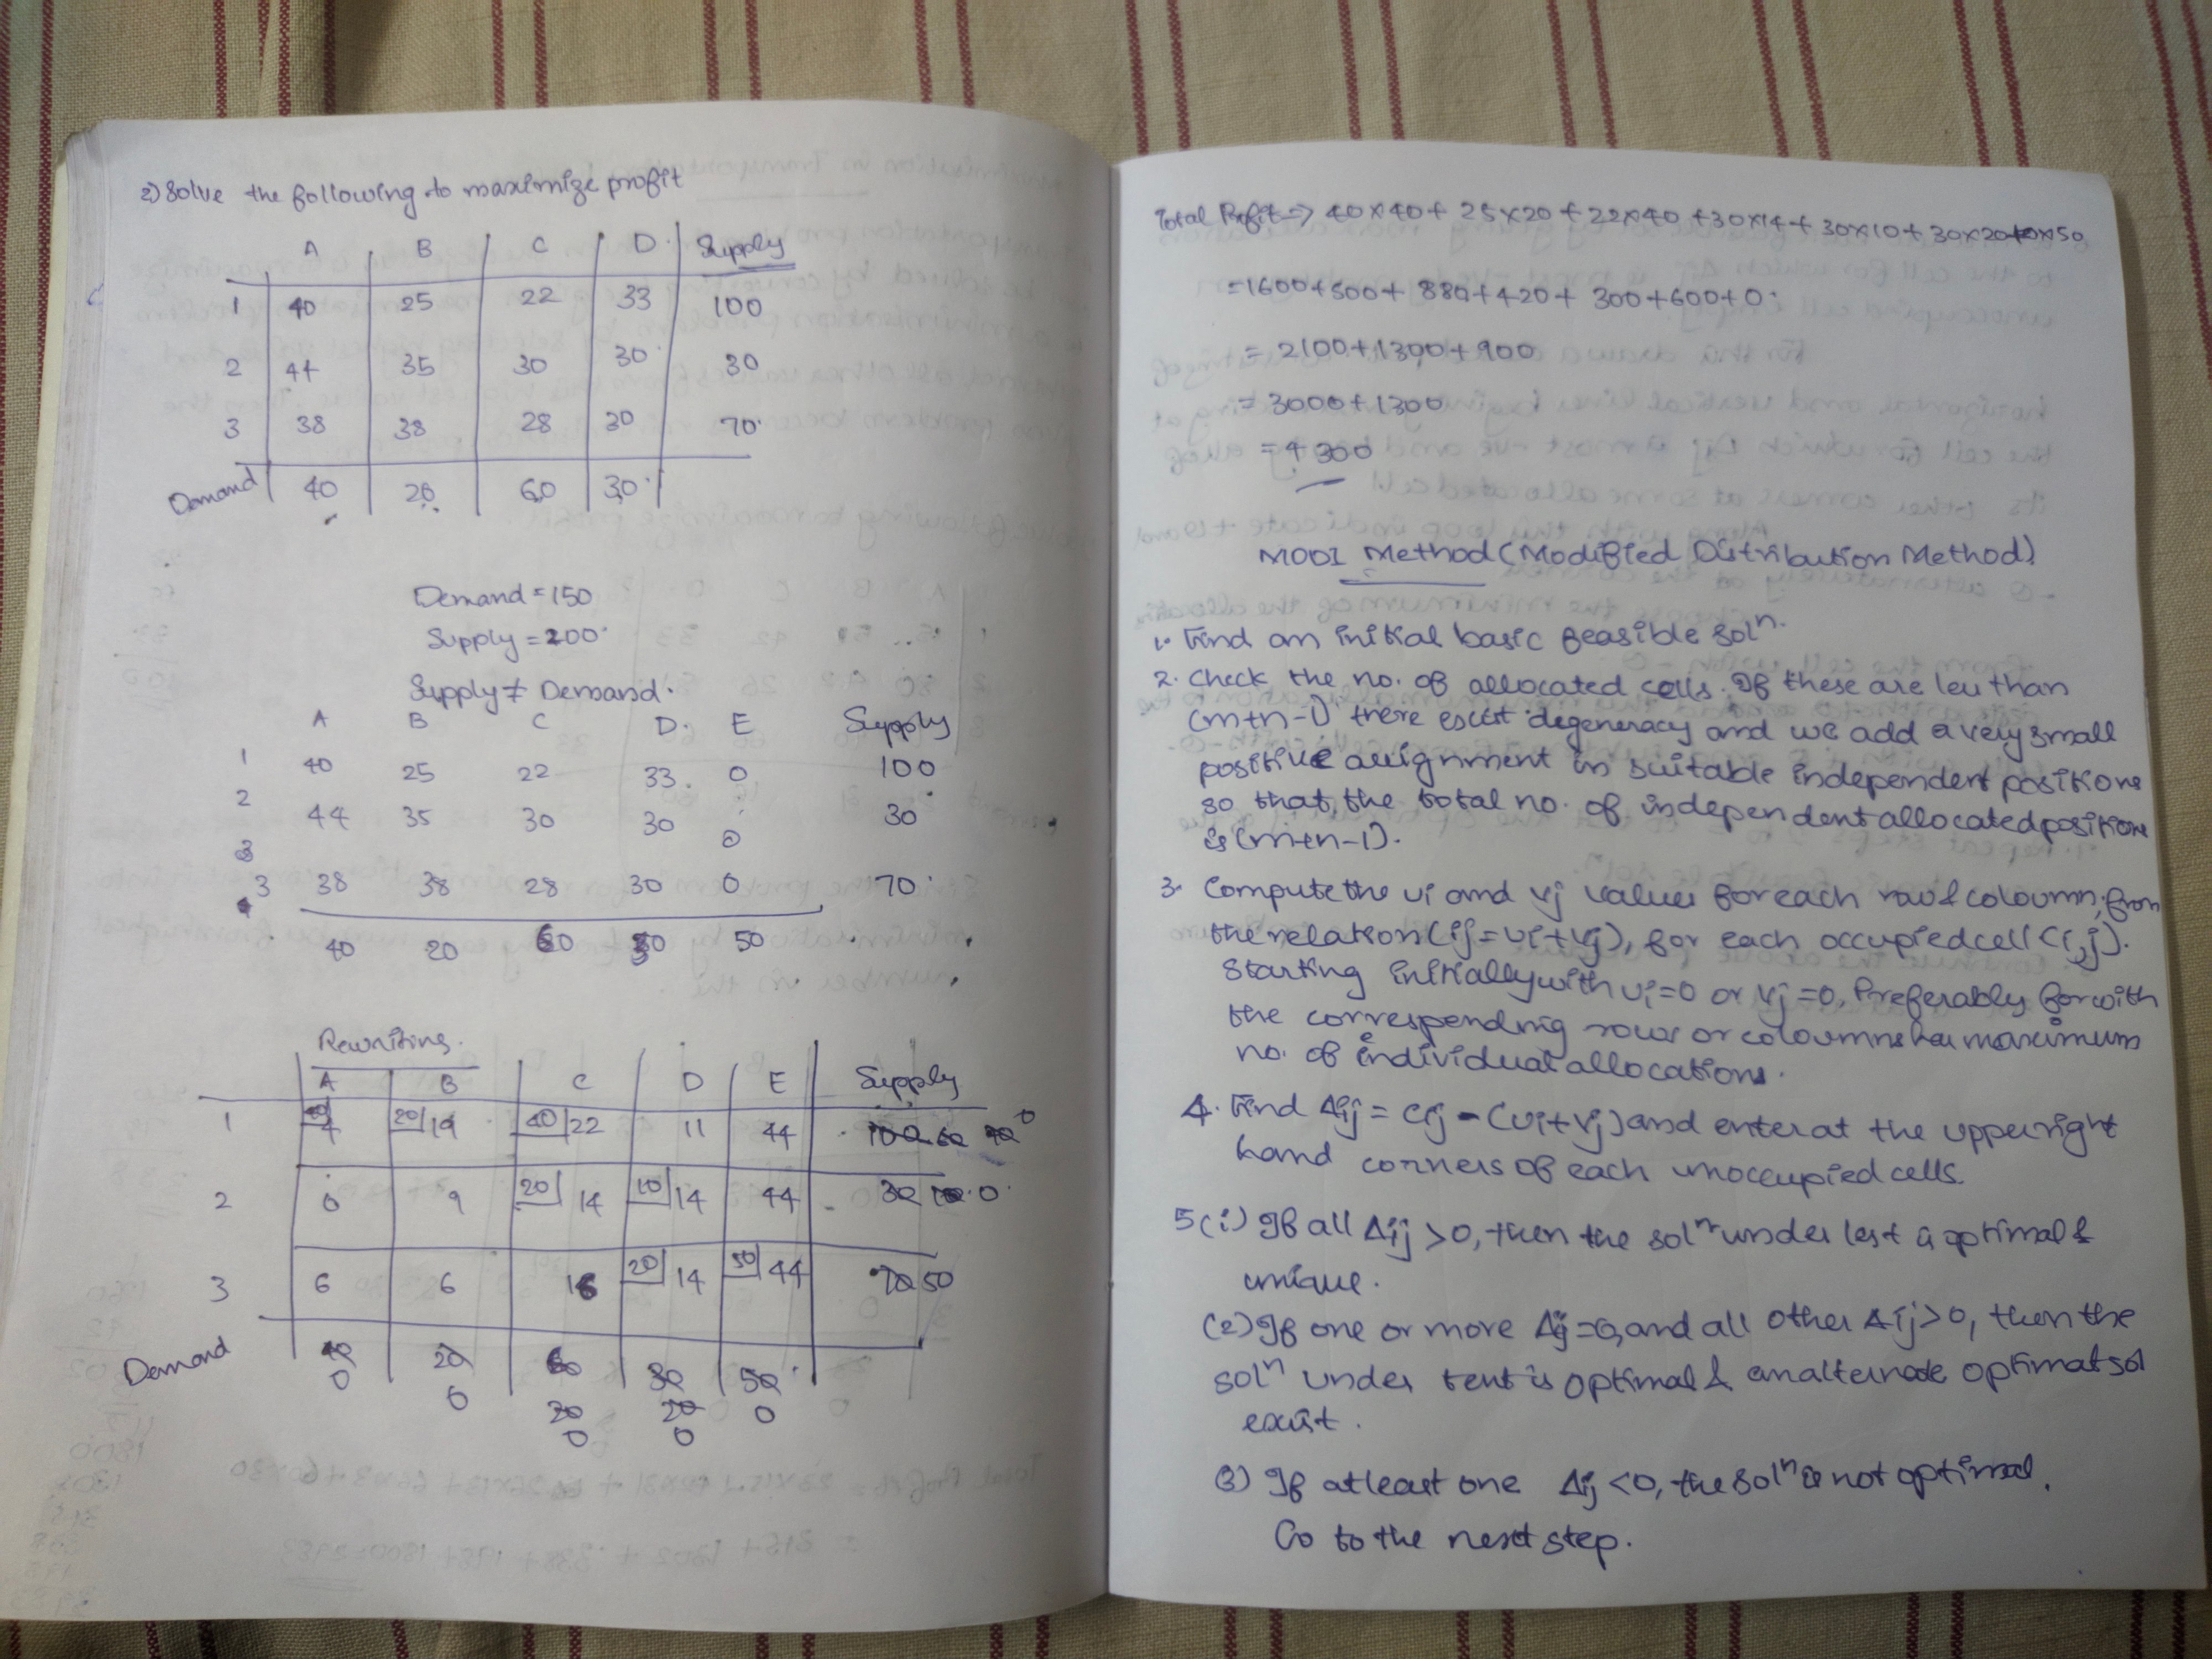 2) Solve the following to maximize profit
A B C D. Supply
1 40 25 22 33 100
2 44 35 30 30 30
3 38 38 28 30 70
Demand 40 20 60 30
Demand = 150
Supply = 200
Supply ≠ Demand.
A B C D. E Supply
1 40 25 22 33. 0 100
2 44 35 30 30 0 30
3 38 38 28 30 0 70
40 20 60 30 50
Rewriting.
A B C D E Supply
1 40 4 20 19 40 22 11 44 100 60 40 0
2 0 9 20 14 10 14 44 30 10 0
3 6 6 16 20 14 50 44 70 50
Demand 40 20 60 30 50
0 0 20 20 0
0 0
Total Profit => 40x40 + 25x20 + 22x40 + 30x14 + 30x10 + 30x20 + 0x50
= 1600 + 500 + 880 + 420 + 300 + 600 + 0.
= 2100 + 1300 + 900
= 3000 + 1300
= 4300
MODI Method (Modified Distribution Method)
1. Find an initial basic feasible solⁿ.
2. Check the no. of allocated cells. If these are less than
(m+n-1) there exist degeneracy and we add a very small
positive assignment in suitable independent positions
so that, the total no. of independent allocated positions
is (m+n-1).
3. Compute the ui and vj values for each row & coloumn, from
the relation (ij = ui + vj), for each occupied cell (i,j).
Starting initially with ui = 0 or vj = 0, Preferably for with
the corresponding rows or coloumns has maximum
no. of individual allocations.
4. Find Δij = cij - (ui + vj) and enter at the upper right
hand corners of each unoccupied cells.
5 (i) If all Δij > 0, then the solⁿ under test is optimal &
unique.
(2) If one or more Δij = 0, and all other Δij > 0, then the
solⁿ under test is optimal & an alternate optimal sol
exist.
(3) If atleast one Δij < 0, the solⁿ is not optimal.
Go to the next step.